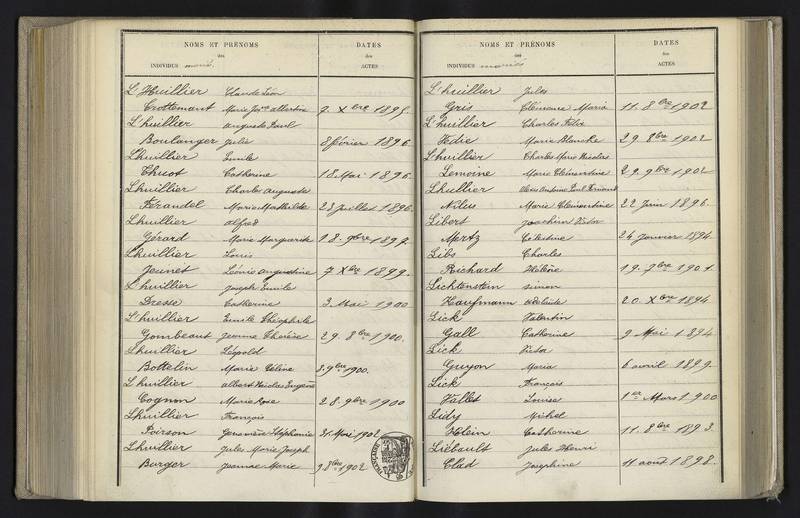 NOMS ET PRÉNOMS DATES
des des
INDIVIDUS mariés. ACTES
L'Huillier Claude Léon
Crottemant Marie Jos.ne albertine 7 Xbre 1895.
L'huillier auguste Paul
Boulanger Julie 8 février 1896
Lhuillier Emile
Thuot Catherine 18 Mai 1896.
Lhuillier Charles auguste
Férandel Marie Mathilde 23 juillet 1896.
Lhuillier alfred
Gérard Marie Marguerite 18. 9bre 1897.
Lhuillier Louis
Jeunet Léonie augustine 7 Xbre 1899.
L'huillier Joseph Emile
Dresse Catherine 3 Mai 1900
L'huillier Emile Théophile
Gombeaut Jeanne Thérèse 29. 8bre 1900.
Lhuillier Léopold
Bottelin Marie Céline 8. 9bre 1900.
L'huillier albert Nicolas Eugène
Cognon Marie Rose 28. 9bre 1900
Lhuillier François
Poirson Geneviève Stéphanie 31 Mai 1902
Lhuillier Jules Marie Joseph
Burger Jeanne Marie 9. 8bre 1902
NOMS ET PRÉNOMS DATES
des des
INDIVIDUS mariés ACTES
L'huillier Jules
Gris Clémence Maria 11. 8bre 1902
L'huillier Charles Félix
Fédie Marie Blanche 29. 8bre 1902
Lhuillier Charles Marie Nicolas
Lemoine Marie Clémentine 29. 9bre 1902
Lhullier Paul
Nilus Marie Clémentine 22 Juin 1896.
Libert Joachim Victor
Mertz Célestine 24 Janvier 1894.
Libs Charles
Richard Hélène 19. 7bre 1901.
Lichtenstein simon
Haufmann adélaïde 20. Xbre 1894
Lick Valentin
Gall Catherine 9 Mai 1894
Lick Victor
Guyon Maria 6 avril 1899.
Lick François
Vallet Louise 1er Mars 1900
Lidy Michel
Klein Catherine 11. 8bre 1893.
Liébault Jules Henri
Clad Joséphine 11 août 1898.